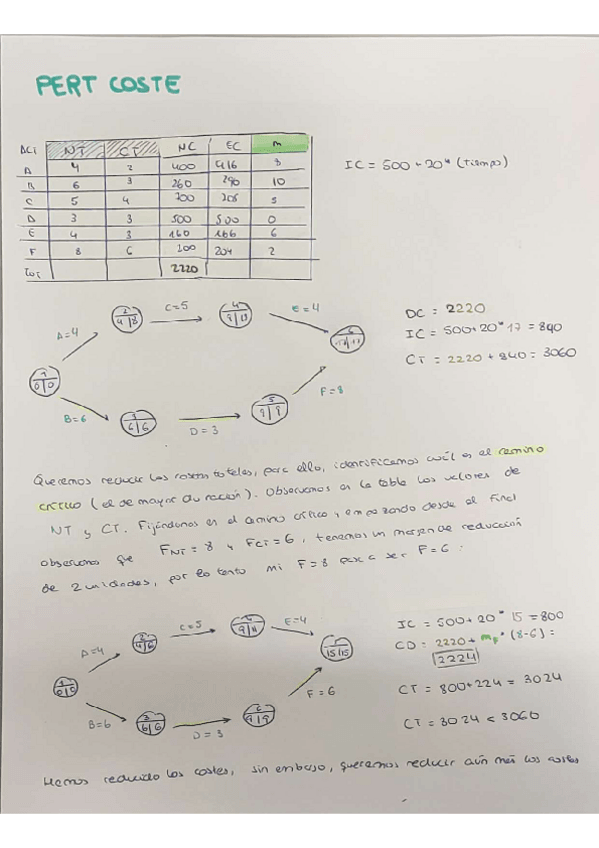 PERT COSTE
ACT NT CT NC EC m
A 4 2 400 416 8
B 6 3 260 290 10
C 5 4 700 705 5
D 3 3 500 500 0
E 4 3 160 166 6
F 8 6 200 204 2
TOT 2220
IC = 500 + 20 * (Tiempo)
A=4
2
4 | 8
C=5
4
9 | 13
E=4
6
17 | 17
1
0 | 0
B=6
3
6 | 6
D=3
5
9 | 9
F=8
DC = 2220
IC = 500 + 20 * 17 = 840
CT = 2220 + 840 = 3060
Queremos reducir los costes totales, para ello, identificamos cuál es el camino
crítico (el de mayor duración). Observamos en la tabla los valores de
NT y CT. Fijándonos en el camino crítico y empezando desde el final
observamos que F NT = 8 y F CT = 6, tenemos un margen de reducción
de 2 unidades, por lo tanto mi F = 8 pasa a ser F = 6:
A=4
2
4 | 6
C=5
9 | 11
E=4
15 | 15
1
0 | 0
B=6
3
6 | 6
D=3
9 | 9
F=6
IC = 500 + 20 * 15 = 800
CD = 2220 + mF * (8-6) =
2224
CT = 800 + 224 = 3024
CT = 3024 < 3060
Hemos reducido los costes, sin embajo, queremos reducir aún más los costes